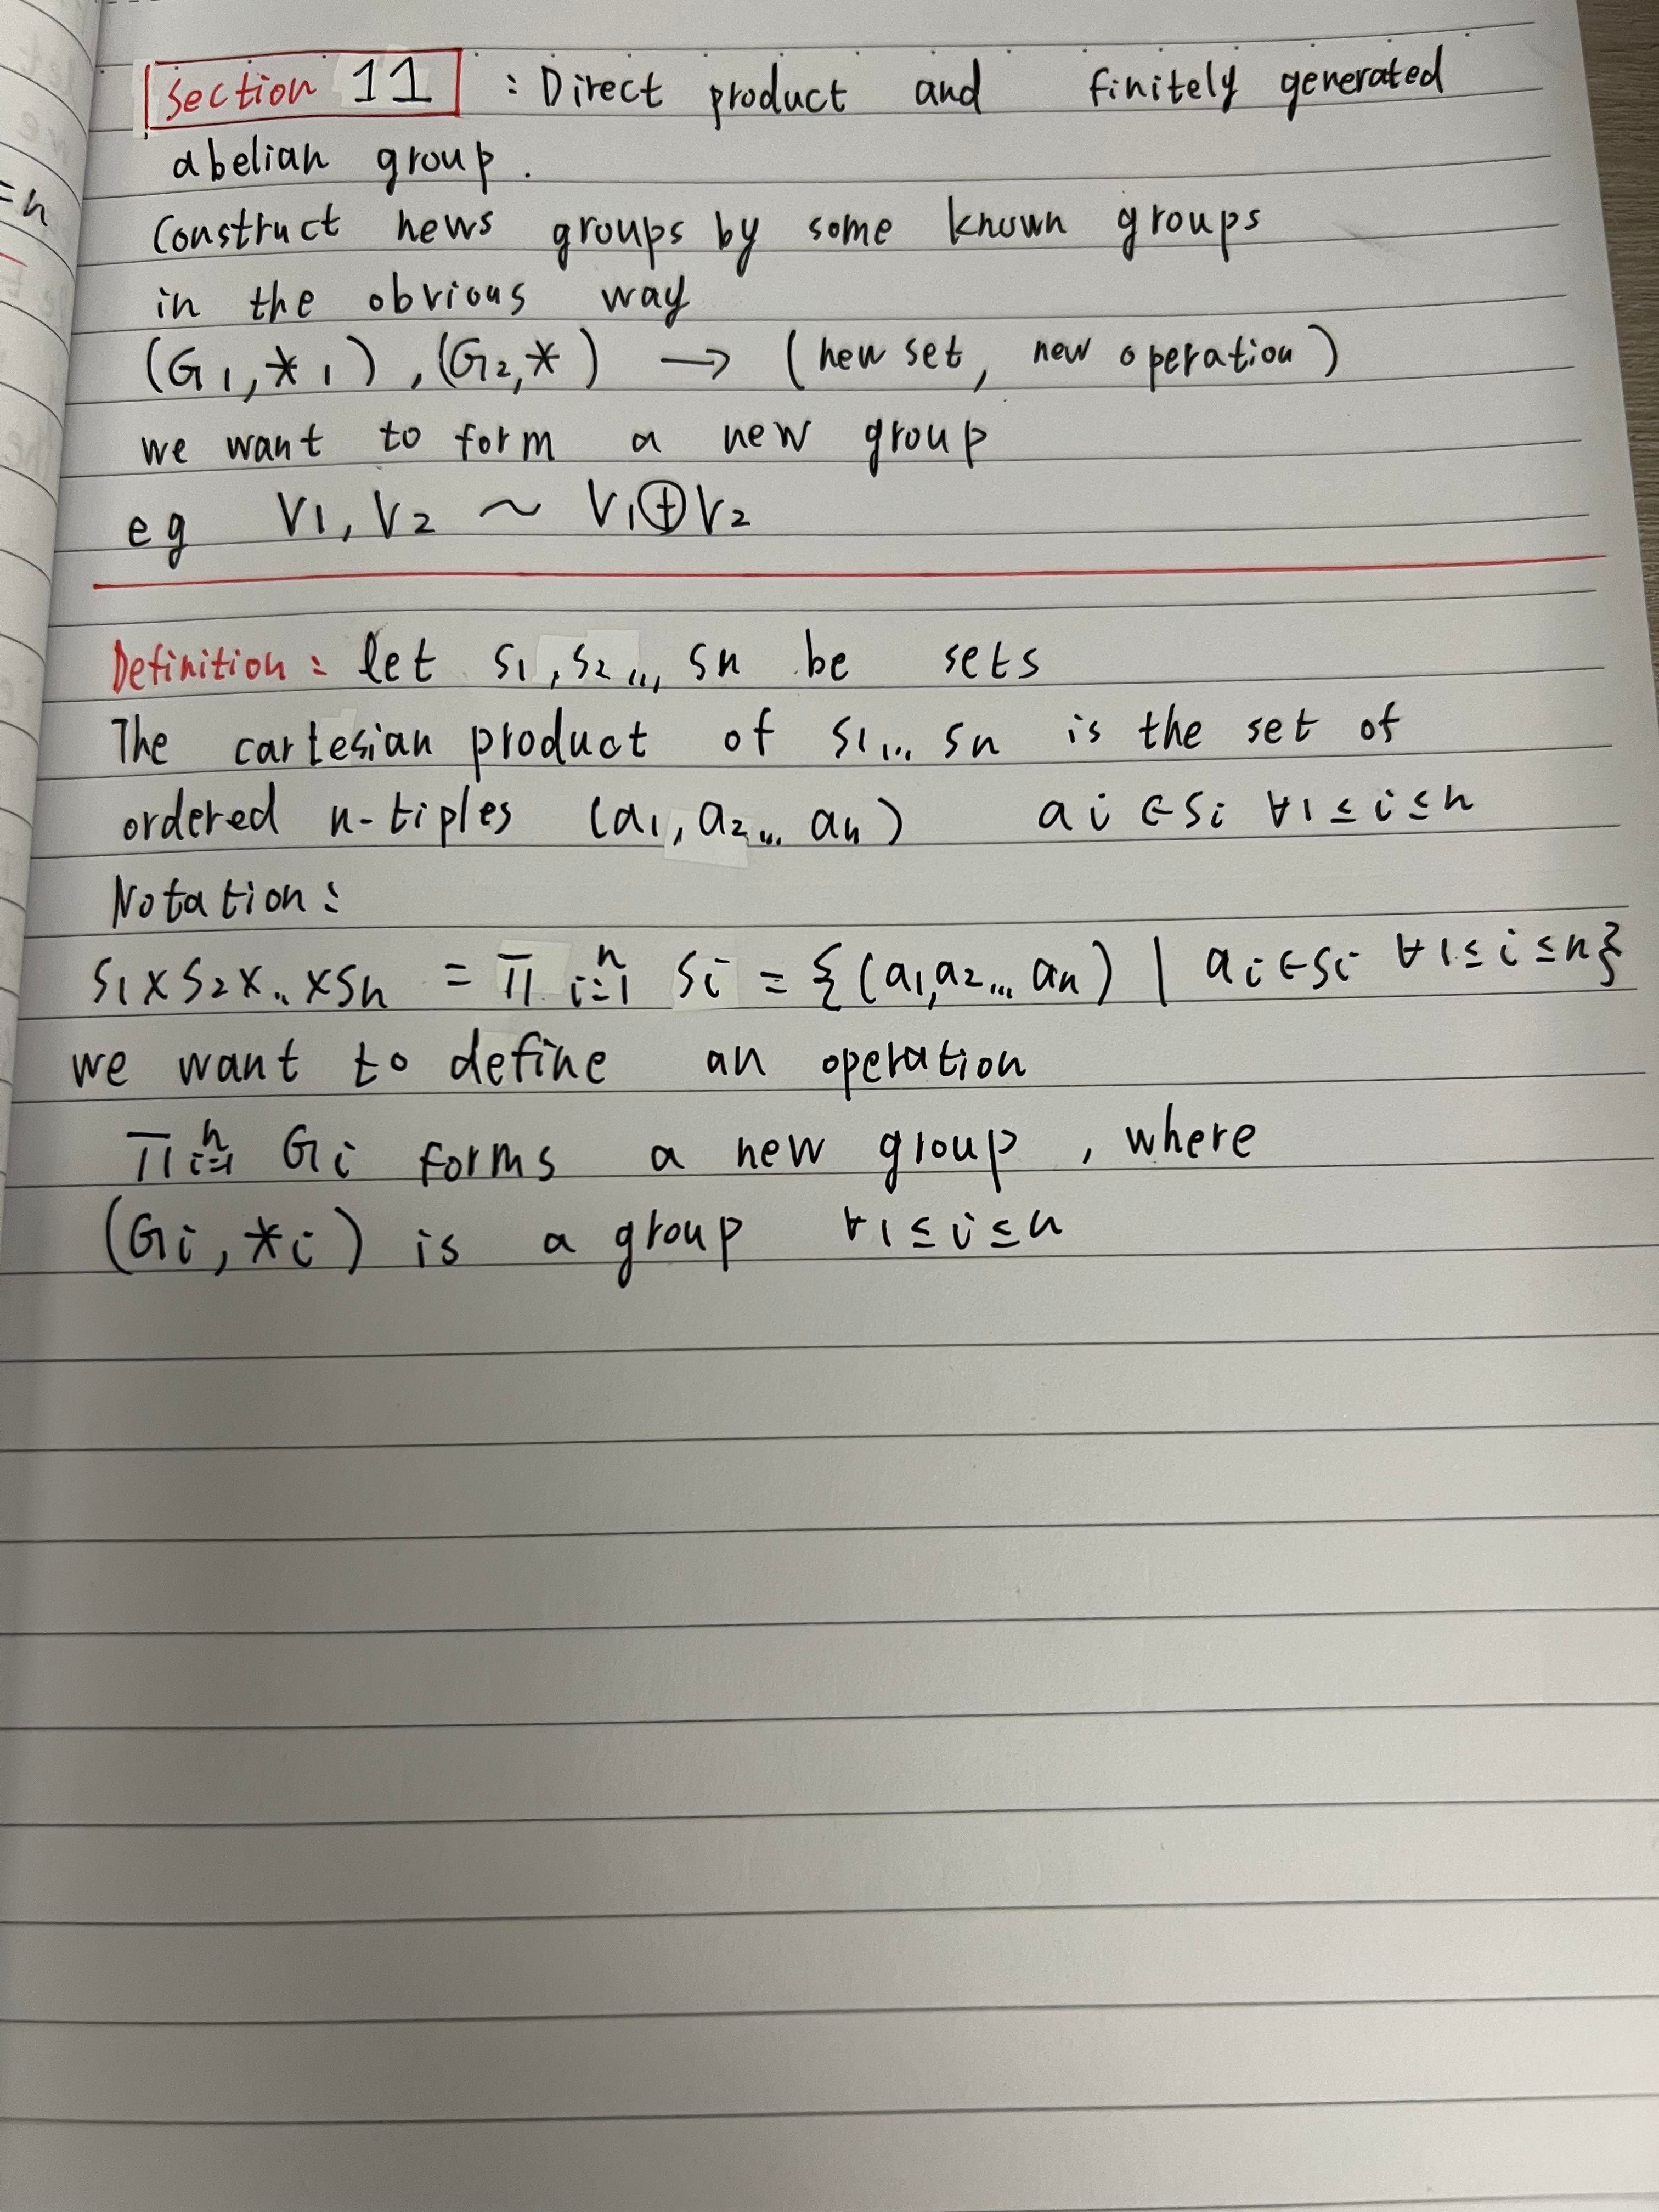 Section 11 : Direct product and finitely generated
abelian group.
Construct news groups by some known groups
in the obvious way
(G1,*1),(G2,*) → (new set, new operation)
we want to form a new group
eg V1,V2 ~ V1⊕V2
Definition: let S1,S2..., Sn be sets
The cartesian product of S1... Sn is the set of
ordered n-tiples (a1,a2... an) ai ∈ Si ∀1≤i≤n
Notation:
S1×S2×..×Sn = Π i=1 n Si = {(a1,a2... an) | ai∈Si ∀1≤i≤n}
we want to define an operation
Π i=1 n Gi forms a new group, where
(Gi,*i) is a group ∀1≤i≤n
=n